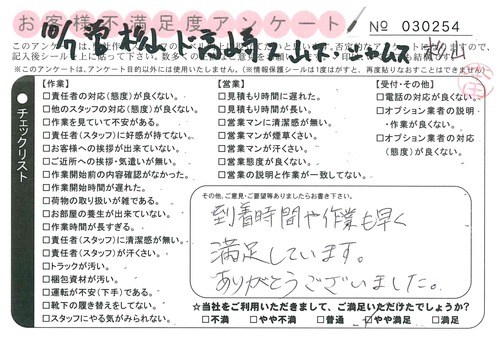 お客様不満足度アンケート
No 030254
※このアンケートは、アンケート目的以外には使用いたしません。(※情報保護シールは1度はがすと、再度貼りなおすことはできません)
チェックリスト
【作業】
□責任者の対応(態度)が良くない。
□他のスタッフの対応(態度)が良くない。
□作業を見ていて不安がある。
□責任者(スタッフ)に好感が持てない。
□お客様への挨拶が出来ていない。
□ご近所への挨拶・気遣いが無い。
□作業開始前の内容確認がなかった。
□作業開始時間が遅れた。
□荷物の取り扱いが雑である。
□お部屋の養生が出来ていない。
□作業時間が長すぎる。
□責任者(スタッフ)に清潔感が無い。
□責任者(スタッフ)が汗くさい。
□トラックが汚い。
□梱包資材が汚い。
□運転が不安(下手)である。
□靴下の履き替えをしてない。
□スタッフにやる気がみられない。
【営業】
□見積もり時間に遅れた。
□見積もり時間が長い。
□営業マンに清潔感が無い。
□営業マンが煙草くさい。
□営業マンが汗くさい。
□営業態度が良くない。
□営業の説明と作業が一致してない。
【受付・その他】
□電話の対応が良くない。
□オプション業者の説明・作業が良くない。
□オプション業者の対応(態度)が良くない。
その他、ご意見・ご要望等ありましたらお書き下さい。
到着時間や作業も早く
満足しています。
ありがとうございました。
☆当社をご利用いただきまして、ご満足いただけたでしょうか?
□不満 □やや不満 □普通 □やや満足 □満足